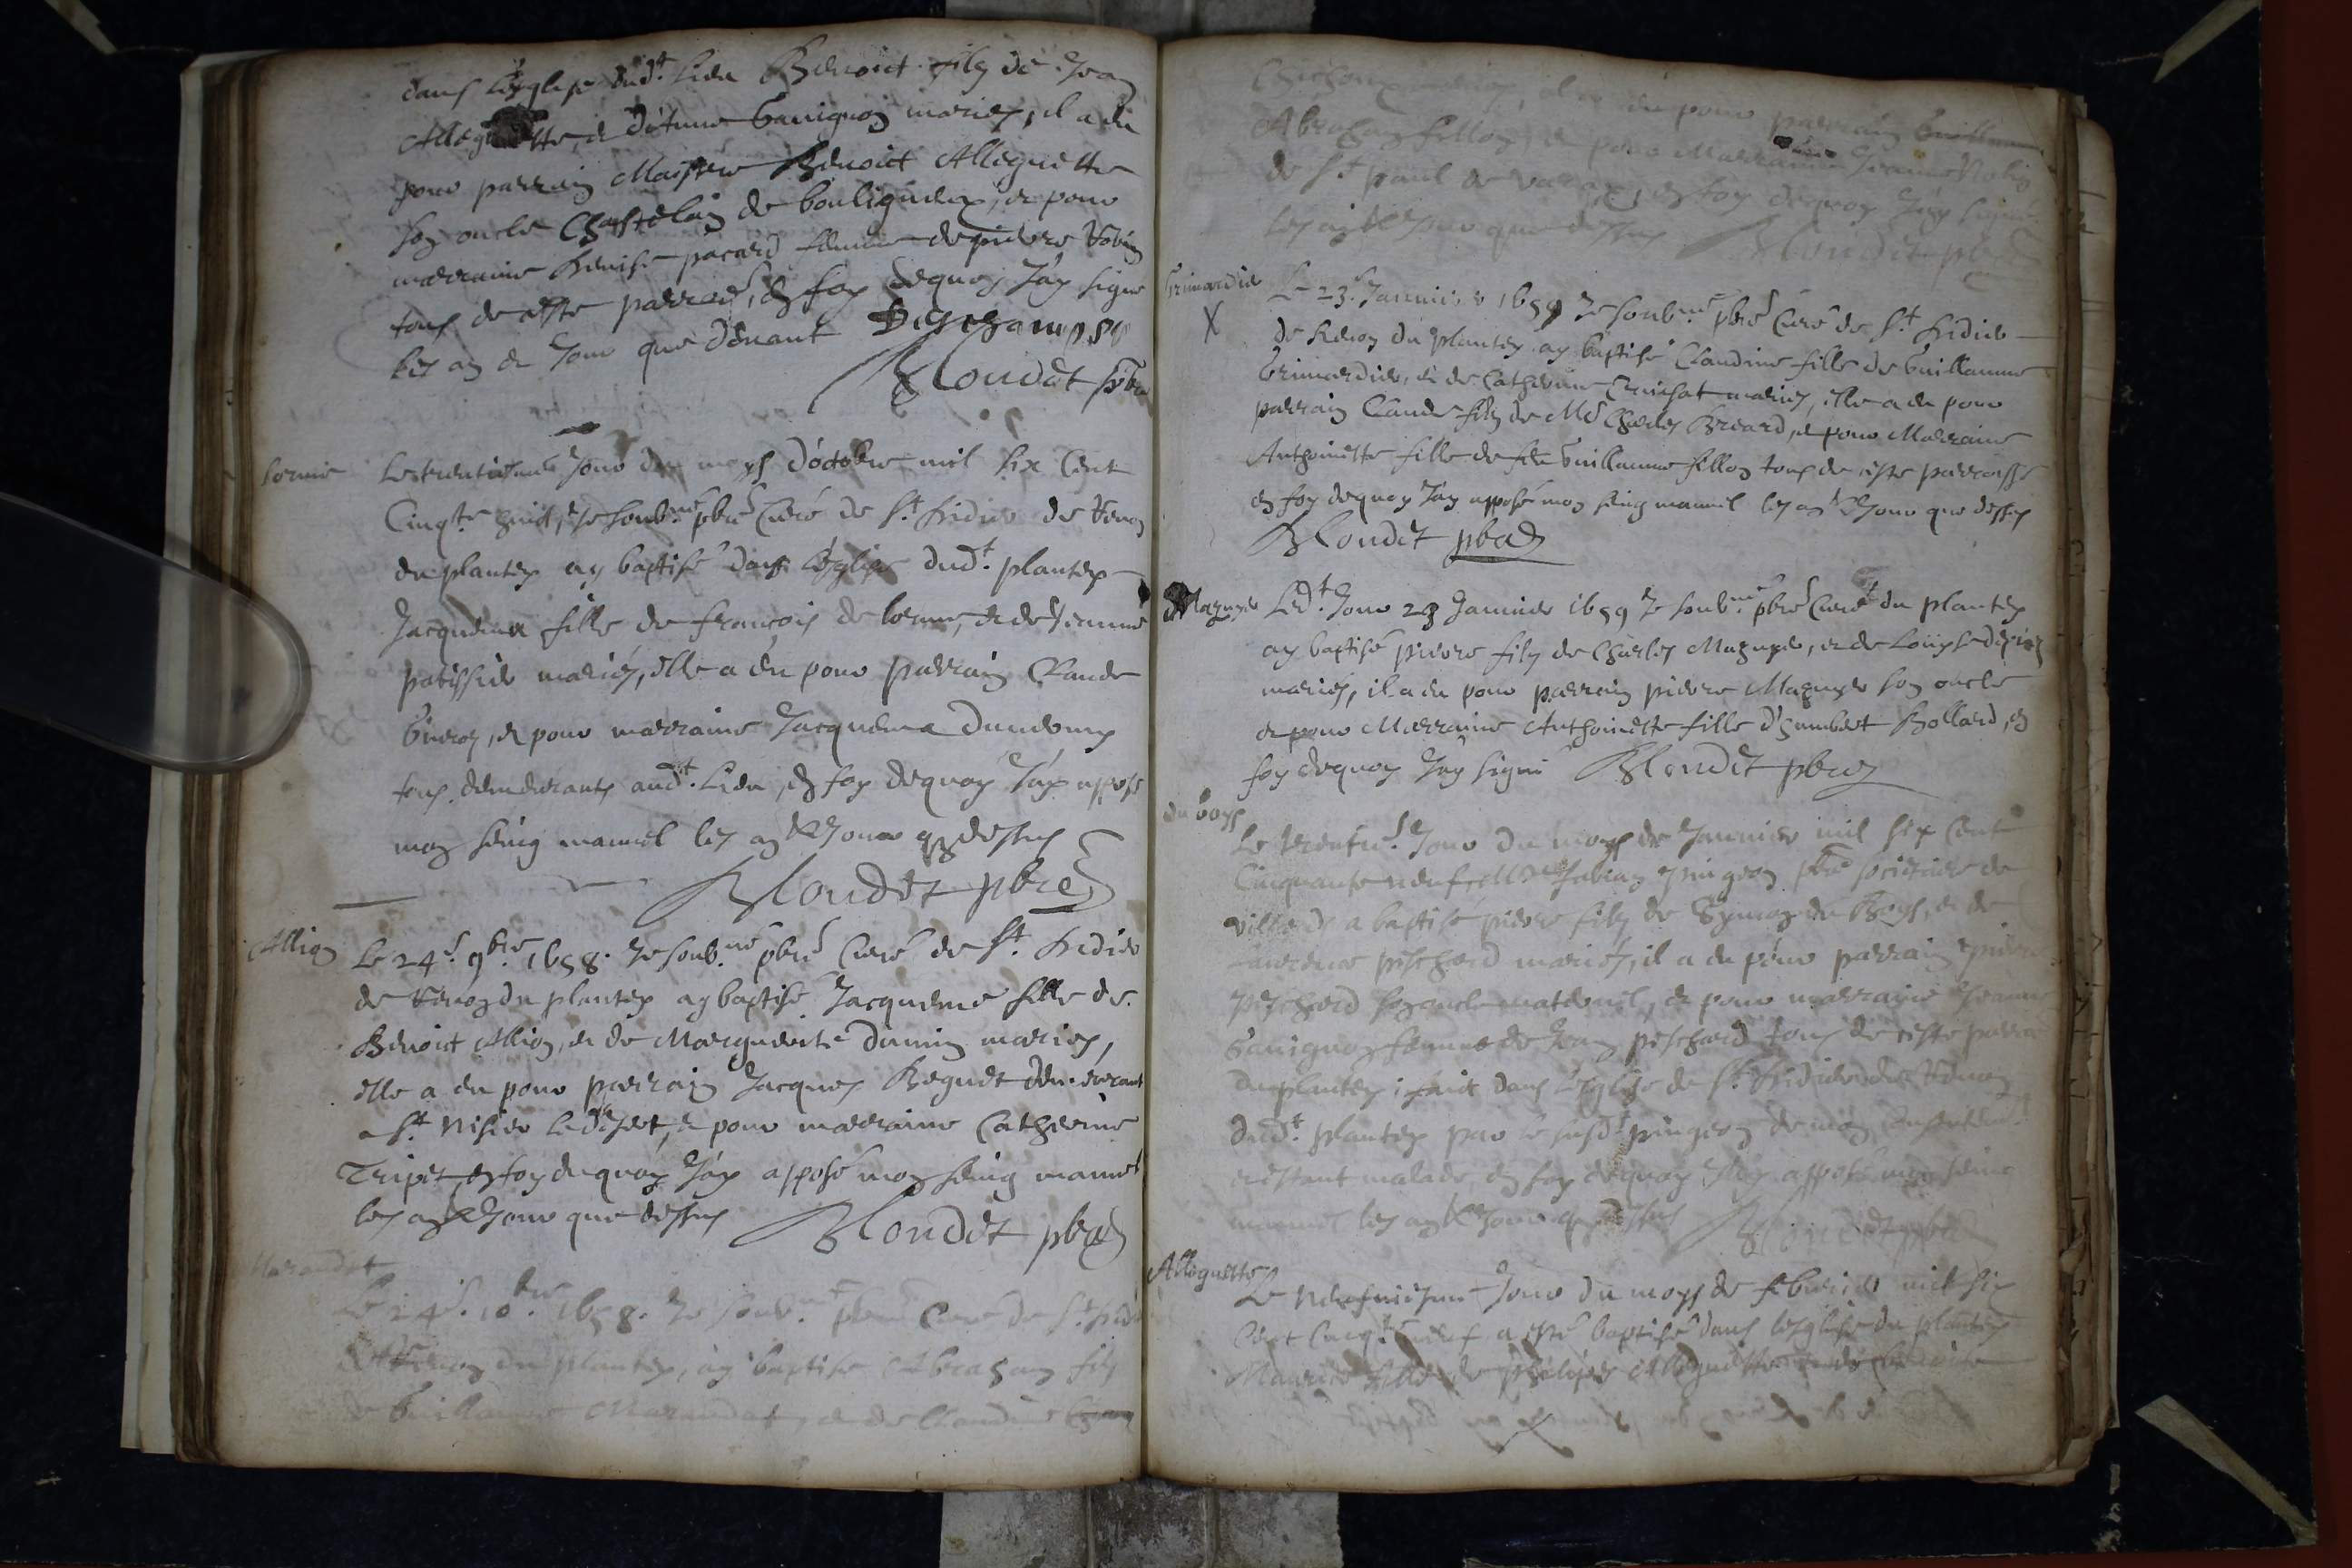 dans l'esglise dud.t Lieu Benoict filz de Jean
Alleguette, et d'Etienne Gavignon mariez, il a eu
pour parrain Maistre Benoict Alleguette
son oncle Chastelain de bouligneux, et pour
marraine Denise pacard femme de pierre Robin
tous de ceste parroë, en foy dequoy J'ay signé
les an et Jour que devant Deschamps
Blondet pbre
lorme
Le trentiesme Jour du moys d'octobre mil six Cent
Cinq.te huict, Je soub.né pbre Curé de S.t Didier de Renon
du plantey ay baptisé dans l'esglise dud.t plantey
Jacquema fille de francois de lorme, et de Jeanne
patissier mariés, elle a eu pour parrain Claude
Gueroz, et pour marraine Jacquema
tous demeurants aud.t Lieu, en foy dequoy J'ay apposé
mon seing manuel les an & Jour q dessus
Blondet pbre
Allion
Le 24.e 9bre 1658. Je soub.né pbre Curé de S.t Didier
de Renon du plantey ay baptisé Jacqueme fille de
Benoict Allion, et de Marguerite Dunin mariez,
elle a eu pour parrain Jacques Beguet demeurant
a S.t Nisier le desert, et pour marraine Catherine
Tripet, en foy de quoy J'ay apposé mon seing manuel
les an & Jour que dessus Blondet pbre
Marandat
Le 24.e 10.bre 1658. Je soub.né pbre Curé de S.t Didier
de Renon du plantey, ay baptisé Abraham filz
de Guillaume Marandat, et de Claudine
mariez, il a eu pour parrain Guillaume
Abraham fillon, et pour Marraine Jeanne Robin
de S.t paul de varax, en foy dequoy J'ay signé
les an & Jour que dessus Blondet pbre
Grimardier
X
Le 23.e Janvier 1659 Je soub.né pbre Curé de S.t Didier
de Renon du plantey ay baptisé Claudine fille de Guillaume
Grimardier, et de Catherine mariez, elle a eu pour
parrain Claude filz de M.e Charles Breard, et pour Marraine
Anthoinette fille de feu Guillaume fillon tous de ceste parroisse
en foy dequoy J'ay apposé mon seing manuel les an & Jour que dessus
Blondet pbre
Mazuyer
Led.t Jour 23 Janvier 1659 Je soub.né pbre Curé du plantey
ay baptisé pierre filz de Charles Mazuyer, et de Louyse
mariés, il a eu pour parrain pierre Mazuyer son oncle
et pour Marraine Anthoinette fille d'humbert Bollard, en
foy dequoy J'ay signé Blondet pbre
du boys
Le trentie.e Jour du moys de Janvier mil six Cent
Cinquante neuf, M.re fabian pingeon pbre societaire de
villars a baptisé pierre filz de Symon du Boys, et de
Laurence peschard mariés, il a eu pour parrain pierre
peschard son oncle maternel, et pour marraine Jeanne
Gavignon femme de Jean peschard tous de ceste parroë
du plantey; faict dans l'esglise de S.t Didier de Renon
dud.t plantey par le susd.t pingeon de mon consentem.t
estant malade, en foy dequoy J'ay apposé mon seing
manuel les an & Jour q dessus Blondet pbre
Alleguette
Le Neufviesme Jour du moys de febvrier mil six
Cent Cinq.te neuf a esté baptisé dans l'esglise du plantey
fille de philipes Alleguette et de